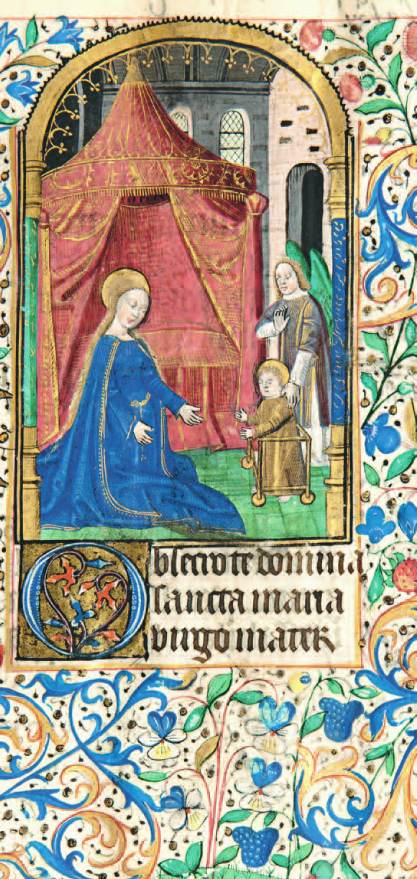 Obsecro te domina
sancta maria
virgo mater